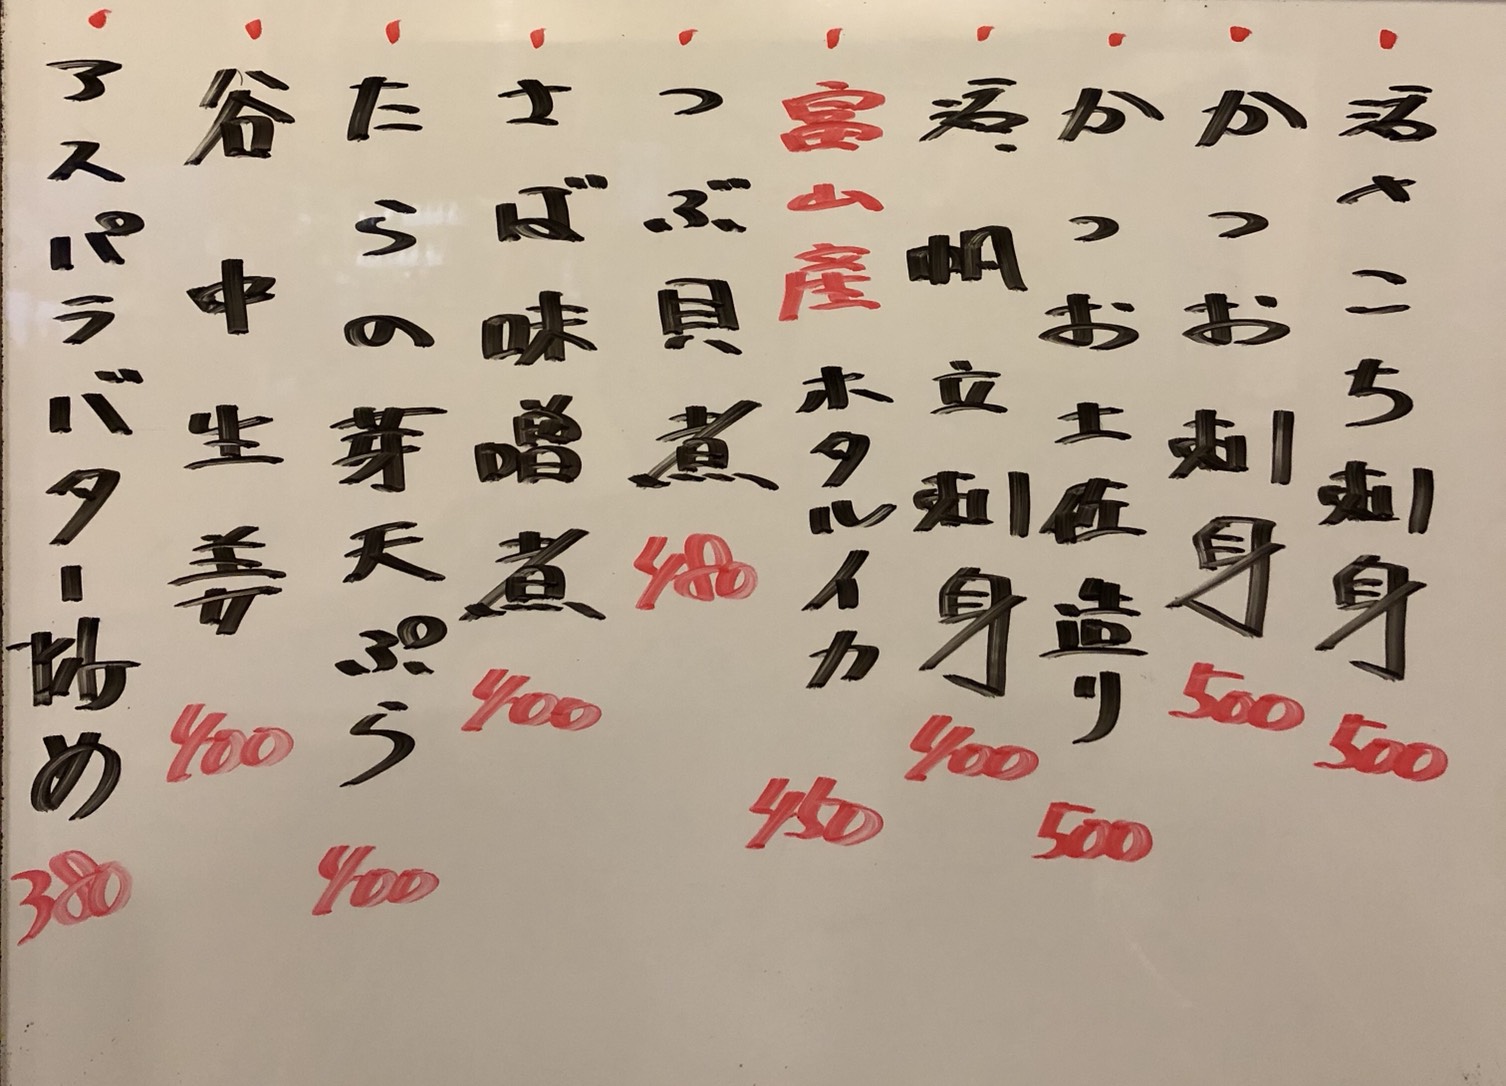 活〆こち刺身 500
かつお刺身 500
かつお土佐造り 500
活帆立刺身 400
富山産ホタルイカ 450
つぶ貝煮 480
さば味噌煮 400
たらの芽天ぷら 400
谷中生姜 400
アスパラバター炒め 380